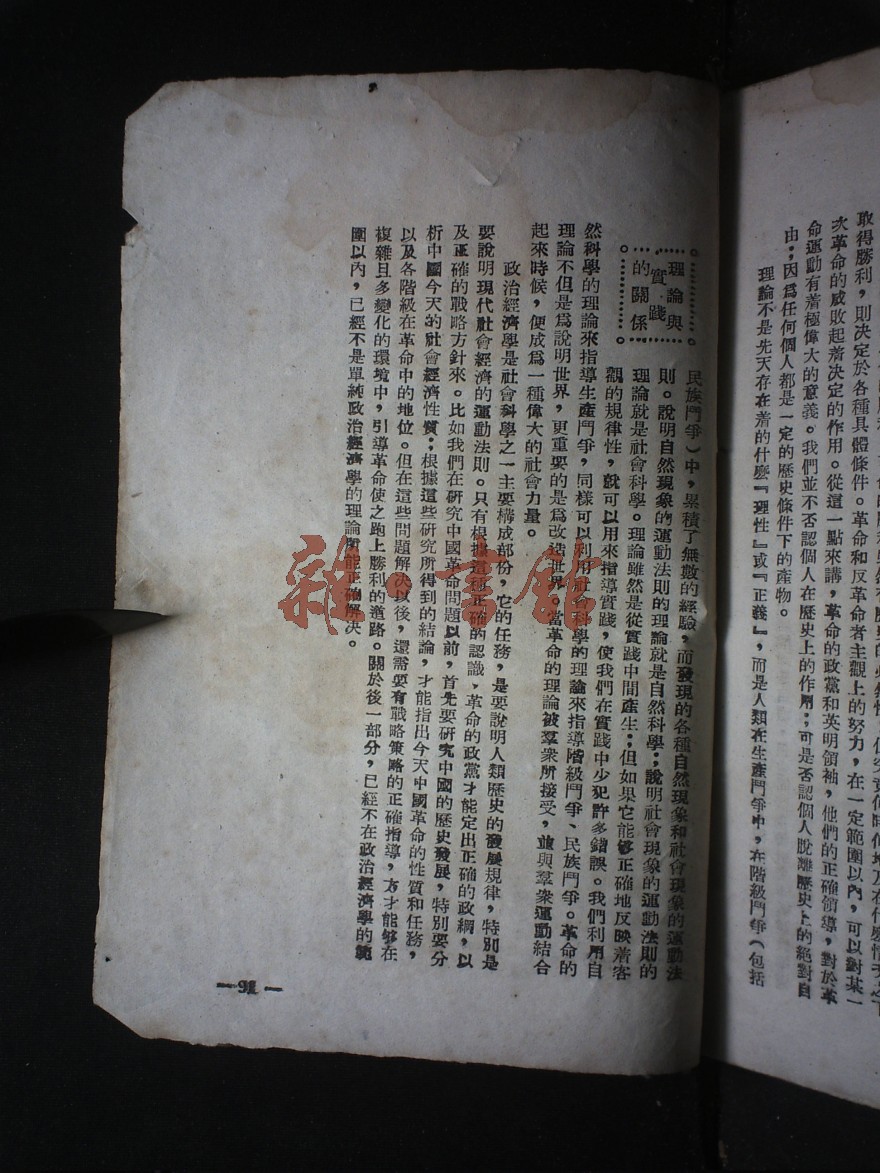 取得勝利，則決定於各種具體條件。革命和反革命者主觀上的努力，在一定範圍以內，可以對某一
次革命的成敗起着決定的作用。從這一點來講，革命的政黨和英明領袖，他們的正確領導，對於革
命運動有着極偉大的意義。我們並不否認個人在歷史上的作用；可是否認個人脫離歷史上的絕對自
由；因爲任何個人都是一定的歷史條件下的產物。
理論不是先天存在着的什麽『理性』或『正義』，而是人類在生產鬥爭中，在階級鬥爭（包括
理論與
實踐
的關係
民族鬥爭）中，累積了無數的經驗，而發現的各種自然現象和社會現象的運動法
則。說明自然現象的運動法則的理論就是自然科學；說明社會現象的運動法則的
理論就是社會科學。理論雖然是從實踐中間產生；但如果它能够正確地反映着客
觀的規律性，就可以用來指導實踐，使我們在實踐中少犯許多錯誤。我們利用自
然科學的理論來指導生產鬥爭，同樣可以利用社會科學的理論來指導階級鬥爭、民族鬥爭。革命的
理論不但是爲說明世界，更重要的是爲改造世界。當革命的理論被羣衆所接受，並與羣衆運動結合
起來時候，便成爲一種偉大的社會力量。
政治經濟學是社會科學之一主要構成部份，它的任務，是要說明人類歷史的發展規律，特別是
要說明現代社會經濟的運動法則。只有根據這種正確的認識，革命的政黨才能定出正確的政綱，以
及正確的戰略方針來。比如我們在研究中國革命問題以前，首先要研究中國的歷史發展，特別要分
析中國今天的社會經濟性質；根據這些研究所得到的結論，才能指出今天中國革命的性質和任務，
以及各階級在革命中的地位。但在這些問題解決以後，還需要有戰略策略的正確指導，方才能够在
複雜且多變化的環境中，引導革命使之跑上勝利的道路。關於後一部分，已經不在政治經濟學的範
圍以內，已經不是單純政治經濟學的理論所能正確解決。
—91—
雜·書館